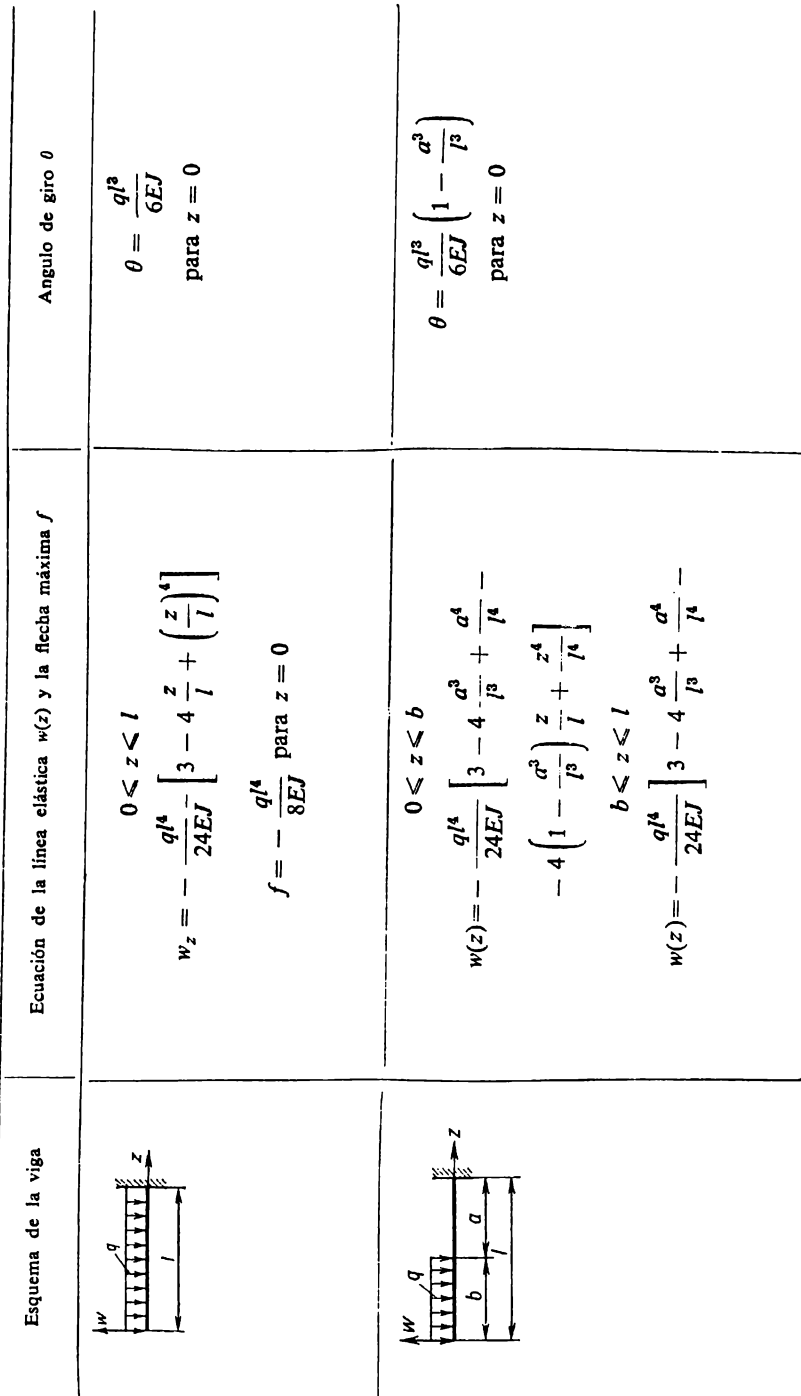 Esquema de la viga
Ecuación de la línea elástica w(z) y la flecha máxima f
Angulo de giro θ
w
q
z
l
0 ⩽ z ⩽ l
w_z = − ql⁴/24EJ [3 − 4 z/l + (z/l)⁴]
f = − ql⁴/8EJ para z = 0
θ = ql³/6EJ
para z = 0
w
q
z
b
a
l
0 ⩽ z ⩽ b
w(z) = − ql⁴/24EJ [3 − 4 a³/l³ + a⁴/l⁴ −
− 4 (1 − a³/l³) z/l + z⁴/l⁴]
b ⩽ z ⩽ l
w(z) = − ql⁴/24EJ [3 − 4 a³/l³ + a⁴/l⁴ −
θ = ql³/6EJ (1 − a³/l³)
para z = 0